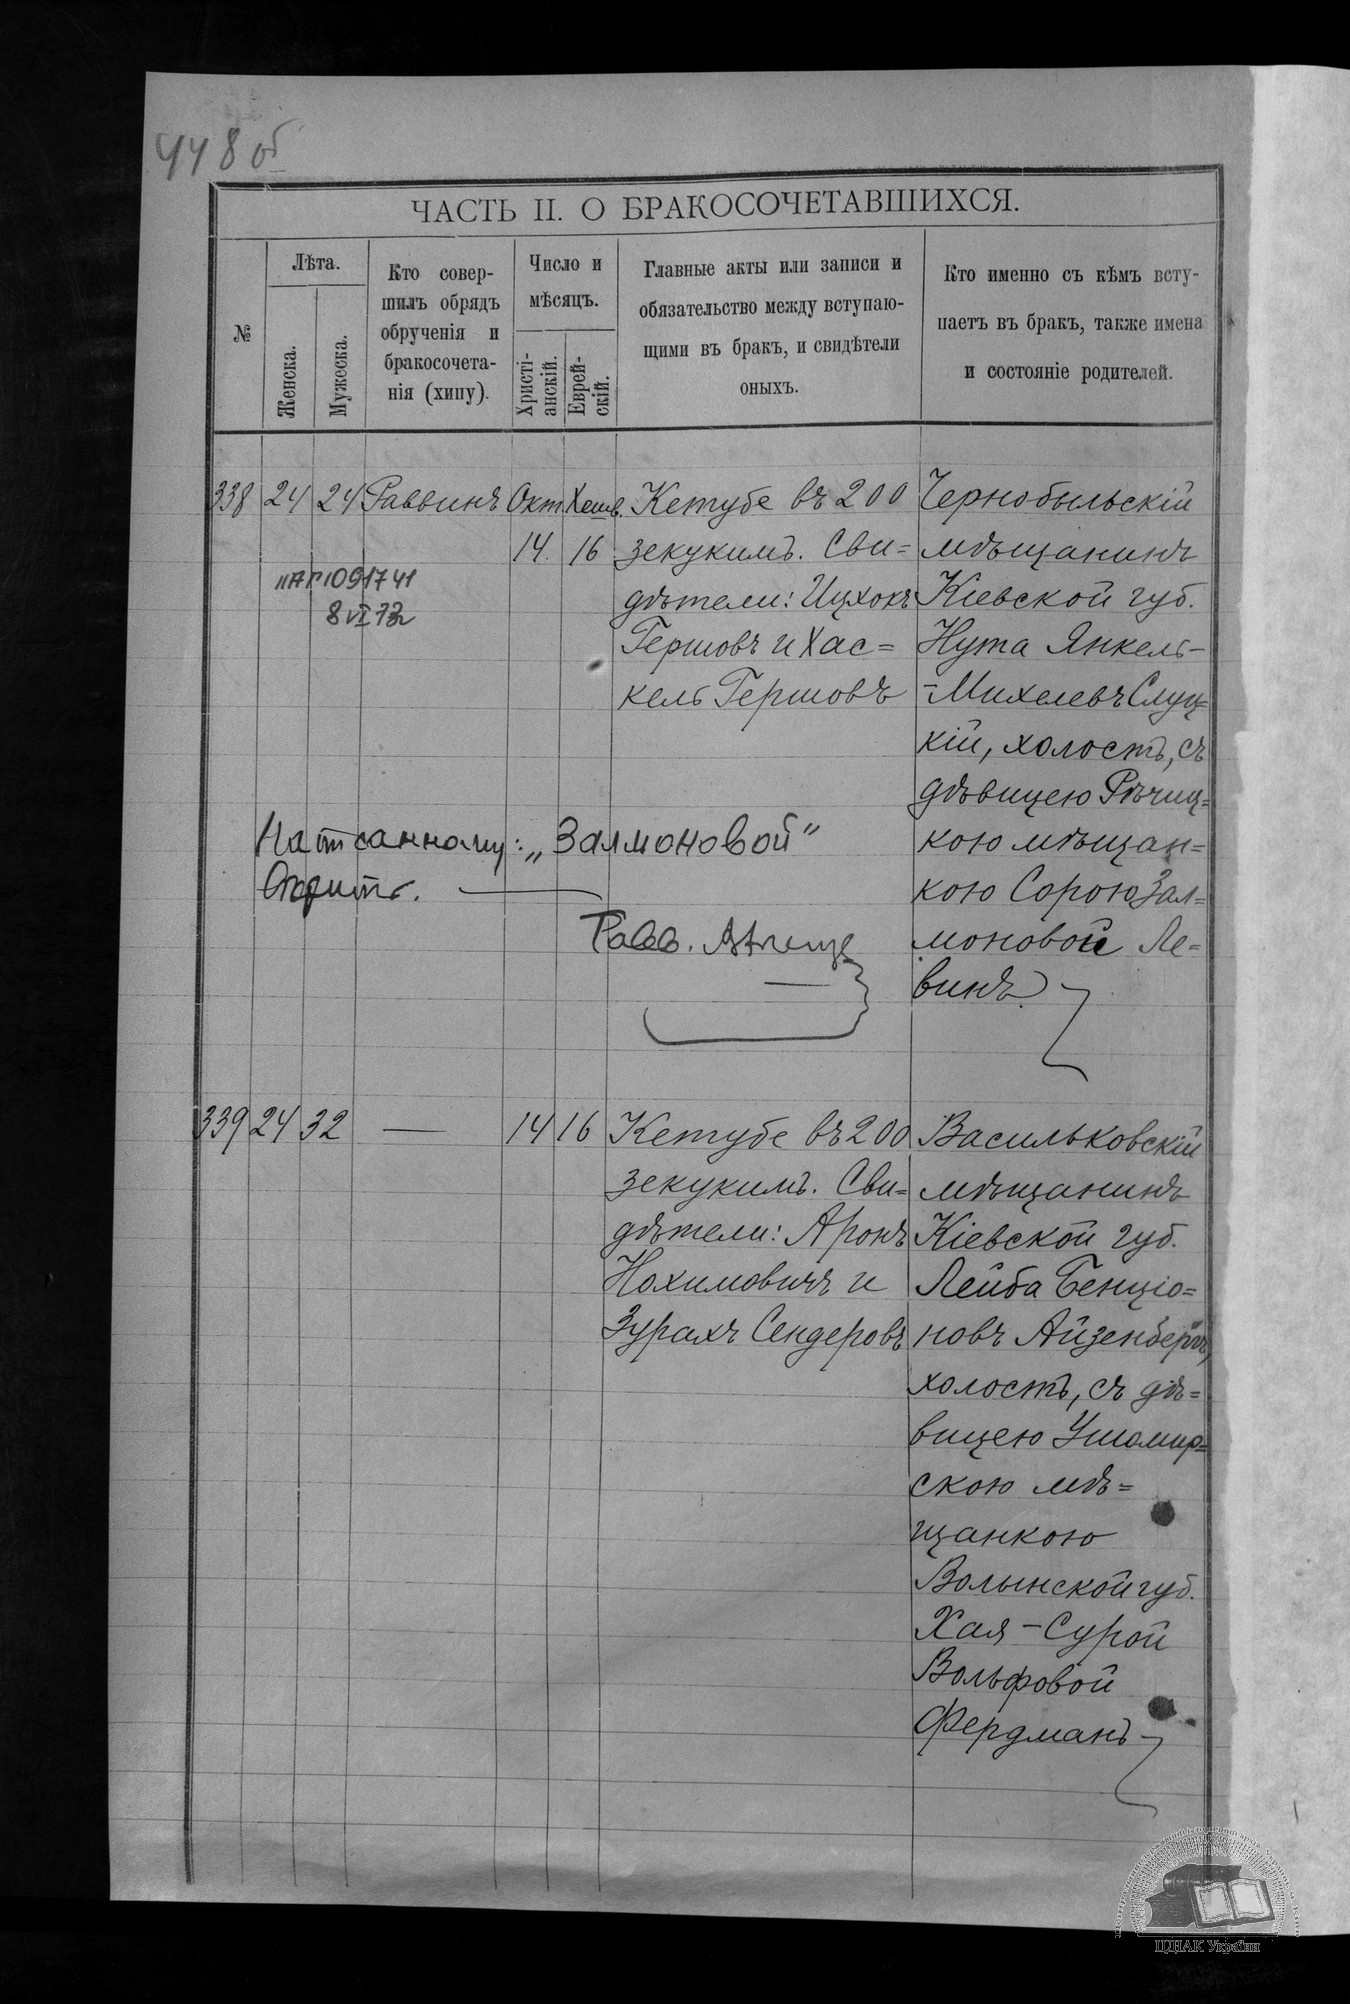 448 об
ЧАСТЬ II. О БРАКОСОЧЕТАВШИХСЯ.
№
Лѣта.
Женска.
Мужеска.
Кто совер-
шилъ обрядъ
обрученія и
бракосочета-
нія (хипу).
Число и
мѣсяцъ.
Христі-
анскій.
Еврей-
скій.
Главные акты или записи и
обязательство между вступаю-
щими въ бракъ, и свидѣтели
оныхъ.
Кто именно съ кѣмъ всту-
паетъ въ бракъ, также имена
и состояніе родителей.
338 24 24 Раввинъ Окт Хешв.
14. 16
Кетубе въ 200
зекукимъ. Сви=
дѣтели: Ицхокъ
Гершовъ и Хас=
кель Гершовъ
Чернобыльскій
мѣщанинъ
Кіевской губ.
Нута Янкель-
-Михелевъ Слуц=
кій, холостъ, съ
дѣвицею Рѣчиц=
кою мѣщан=
кою Сорою Зал=
моновой Ле=
винъ
1091741
8 VI 73
„Залмоновой“
Равв.
339 24 32 — 14 16
Кетубе въ 200
зекукимъ. Сви=
дѣтели: Аронъ
Нохимовичъ и
Зурахъ Сендеровъ
Васильковскій
мѣщанинъ
Кіевской губ.
Лейба Бенціо=
новъ Айзенбергъ,
холостъ, съ дѣ=
вицею Ушомир=
скою мѣ=
щанкою
Волынской губ.
Хая-Сурой
Вольфовой
Фердманъ
ЦДІАК України